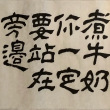 煮牛奶
你一定
要站在
旁邊